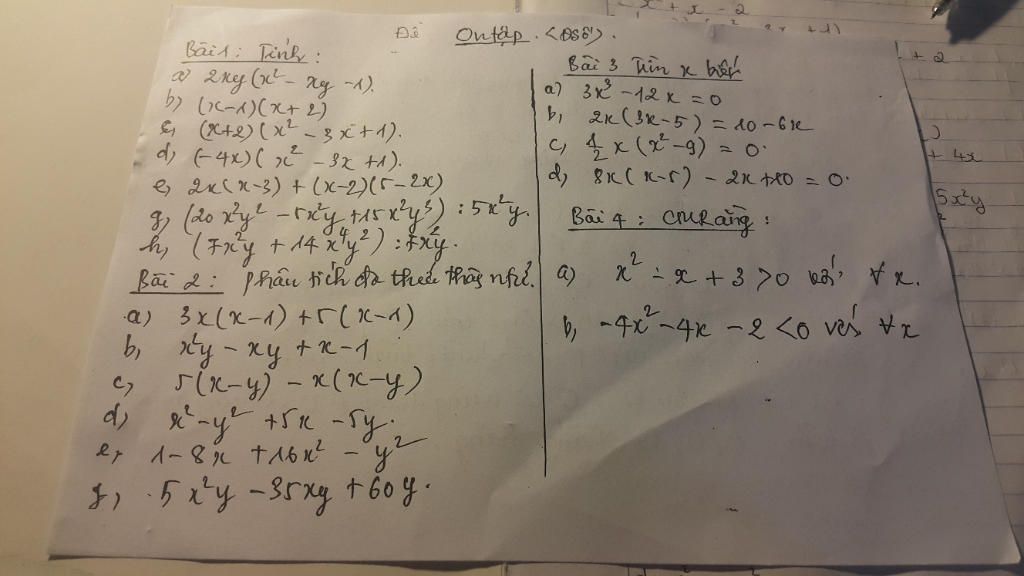 Đề Ôn tập. <Đại số>.
Bài 1: Tính:
a) 2xy(x² - xy - 1).
b) (x-1)(x+2)
c, (x+2)(x² - 3x + 1).
d, (-4x)(x² - 3x + 1).
e, 2x(x-3) + (x-2)(5-2x)
g, (20x²y² - 5x²y + 15x²y³) : 5x²y.
h, (7x²y + 14x⁴y²) : 7x²y.
Bài 2: phân tích đa thức thành nhtử.
a) 3x(x-1) + 5(x-1)
b, x²y - xy + x - 1
c, 5(x-y) - x(x-y)
d) x² - y² + 5x - 5y.
e, 1 - 8x + 16x² - y²
g, 5x²y - 35xy + 60y.
Bài 3 Tìm x biết
a) 3x³ - 12x = 0
b, 2x(3x-5) = 10 - 6x
c, 1/2 x(x²-9) = 0.
d, 8x(x-5) - 2x + 10 = 0.
Bài 4: CMRằng:
a) x² - x + 3 > 0 với ∀x.
b, -4x² - 4x - 2 < 0 với ∀x
- x² + x - 2
+ 2
)
+ 4x
5x²y